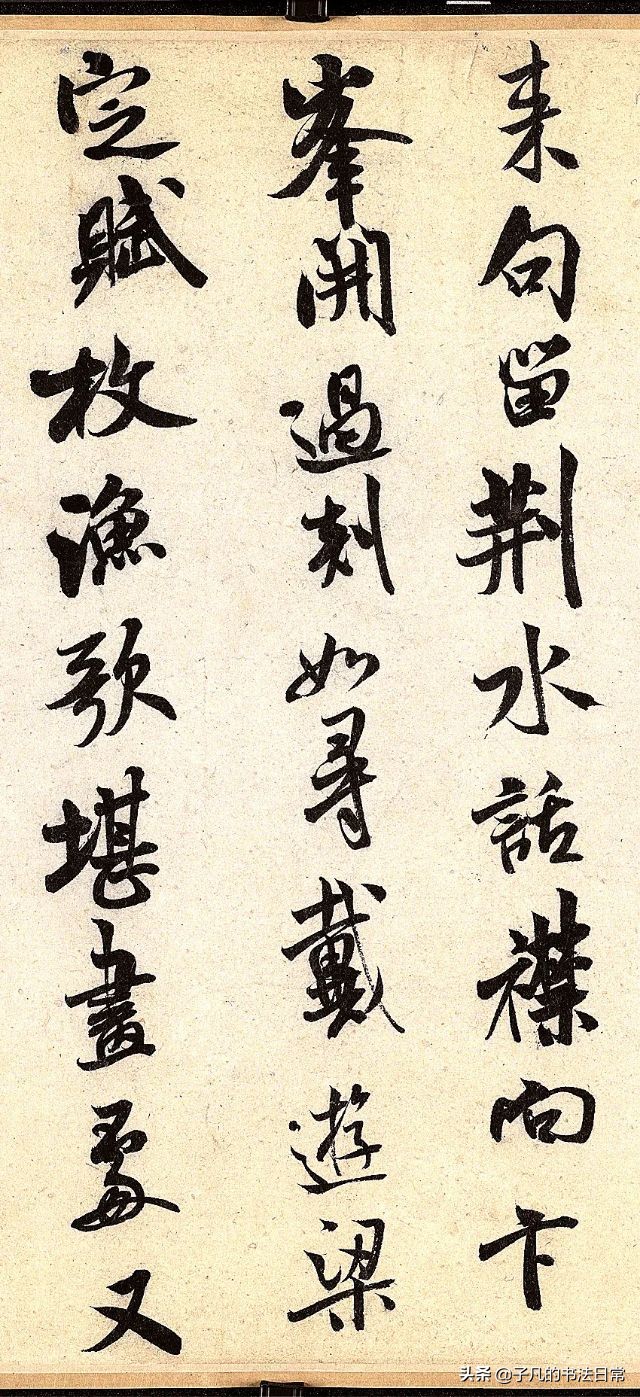 来句留荆水話襟向卞
峯開過剡如尋戴遊梁
定賦枚漁歌堪畫處又
头条 @子凡的书法日常